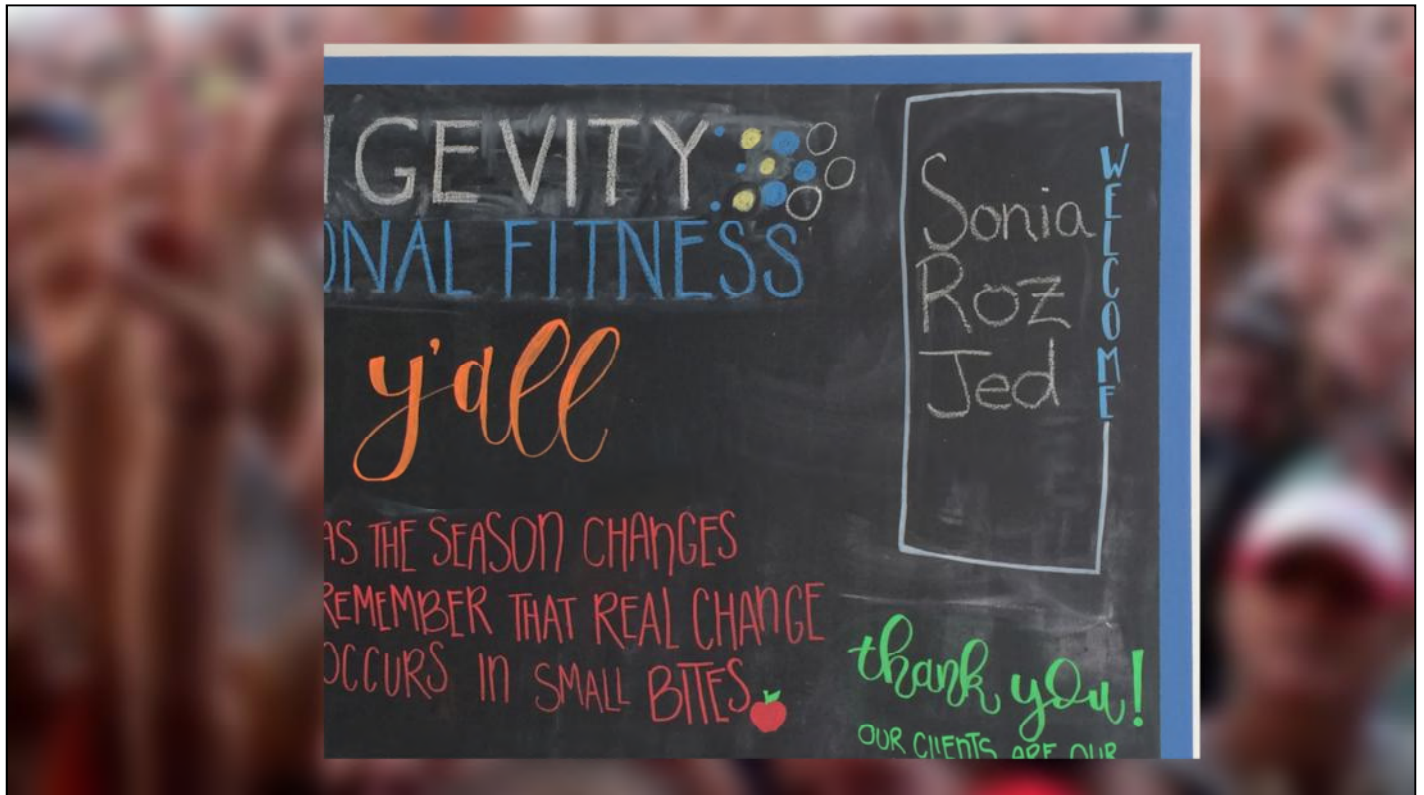 NGEVITY
ONAL FITNESS
y'all
AS THE SEASON CHANGES
REMEMBER THAT REAL CHANGE
OCCURS IN SMALL BITES
WELCOME
Sonia
Roz
Jed
thank you!
OUR CLIENTS ARE OUR